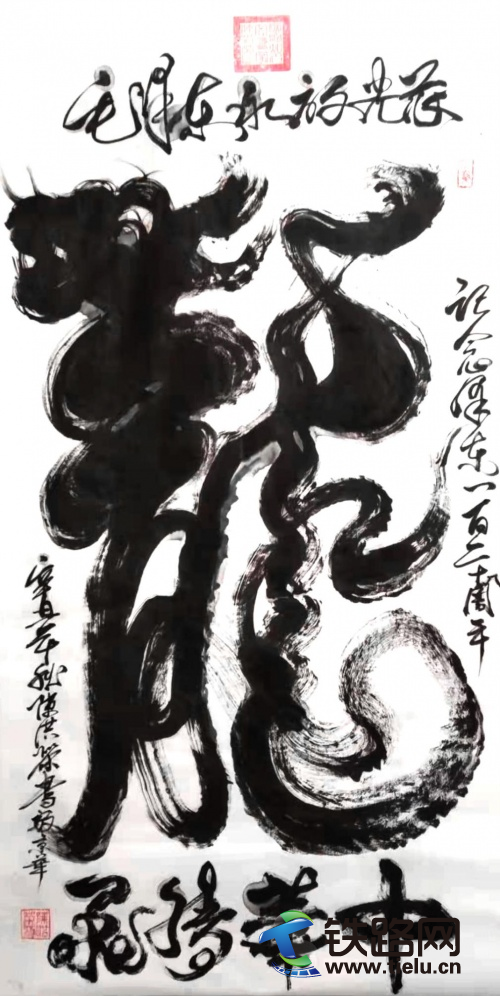 毛泽东永放光芒
龍
记念泽东一百二周年
辛丑年秋陈洪荣书於京华
中华腾飞
铁路网
www.tielu.cn